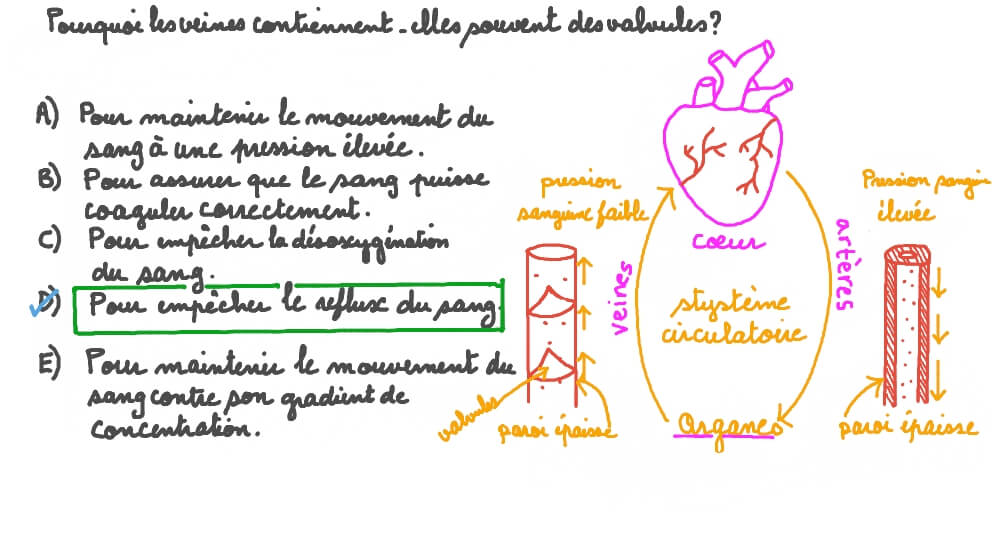 Pourquoi les veines contiennent-elles souvent des valvules?
A) Pour maintenir le mouvement du
sang à une pression élevée.
B) Pour assurer que le sang puisse
coaguler correctement.
C) Pour empêcher la désoxygénation
du sang.
D) Pour empêcher le reflux du sang.
E) Pour maintenir le mouvement du
sang contre son gradient de
concentration.
pression
sanguine faible
valvules
paroi épaisse
veines
cœur
stystème
circulatoire
Organes
artères
Pression sanguine
élevée
paroi épaisse